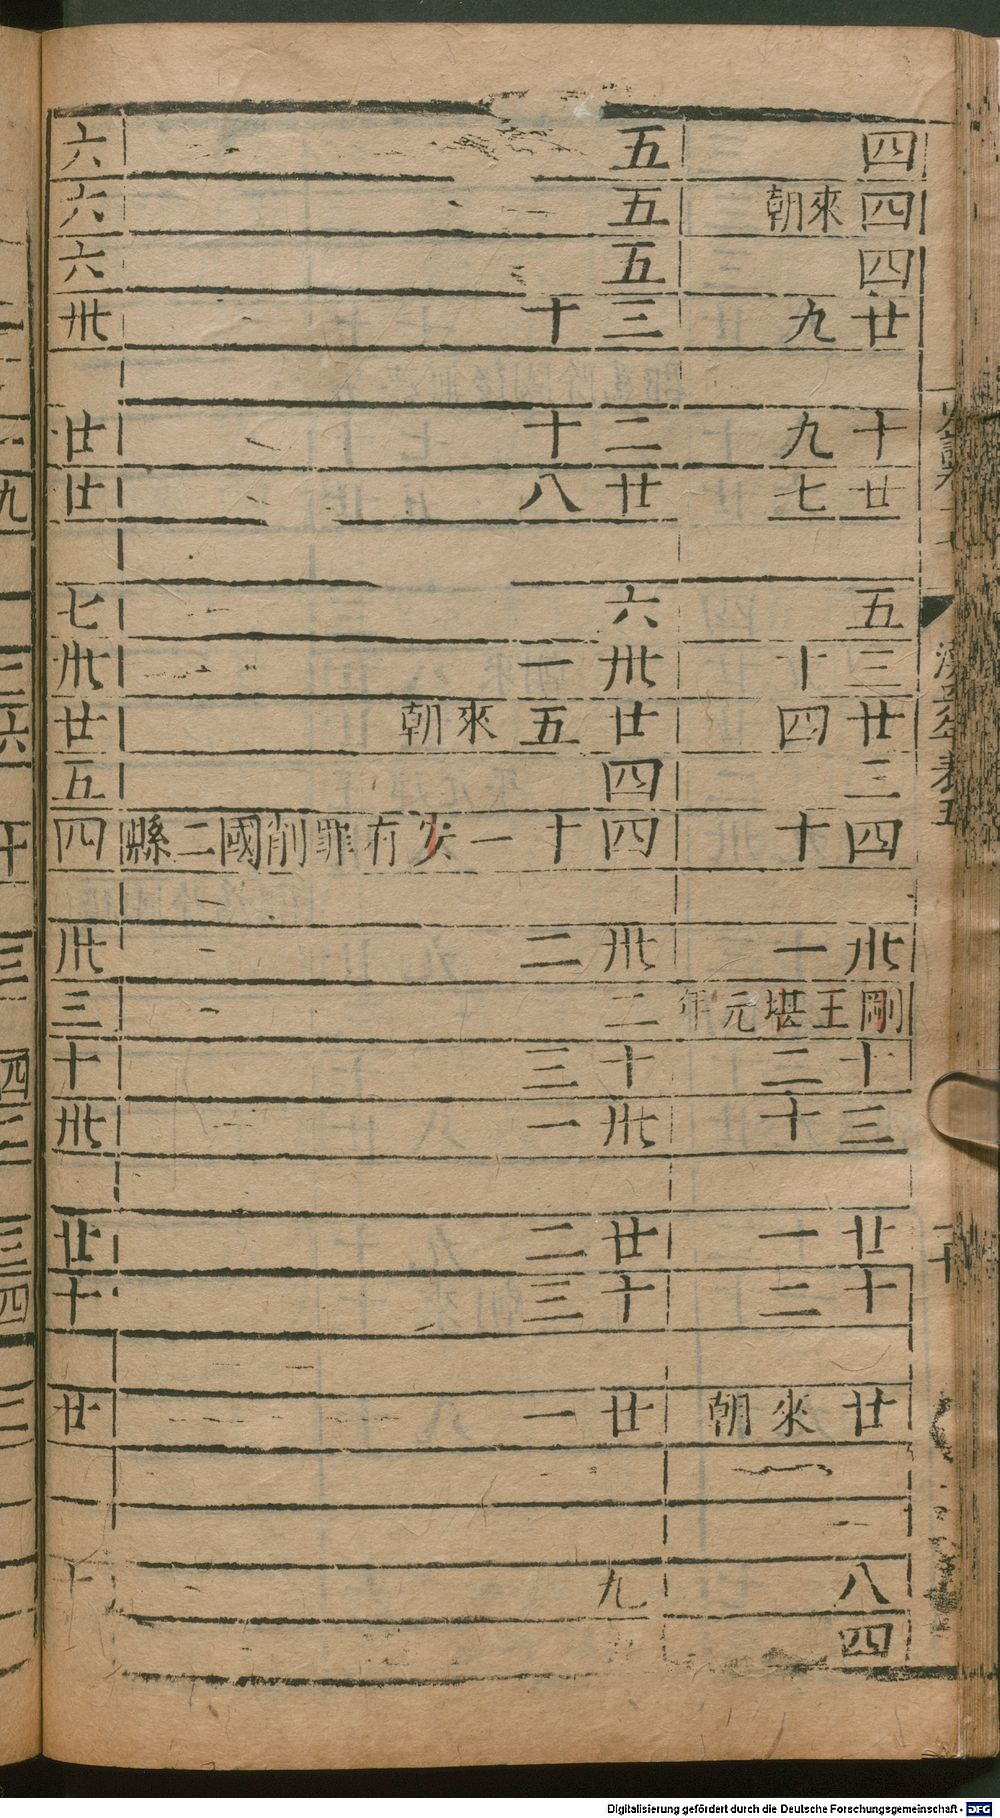 四 五 六
四來朝 五 六
四 五 六
廿九 三十 卅
十九 二十 廿
廿七 廿八 廿
五 六 七
三十 卅一 卅
廿四 廿五來朝 廿
三 四 五
四十 四十一安有罪削國二縣 四
卅一 卅二 卅
剛王堪元年 二 三
十二 十三 十
三十 卅一 卅
廿一 廿二 廿
十二 十三 十
廿來朝 廿一 廿
八 九 十
四
年表五
Digitalisierung gefördert durch die Deutsche Forschungsgemeinschaft - DFG